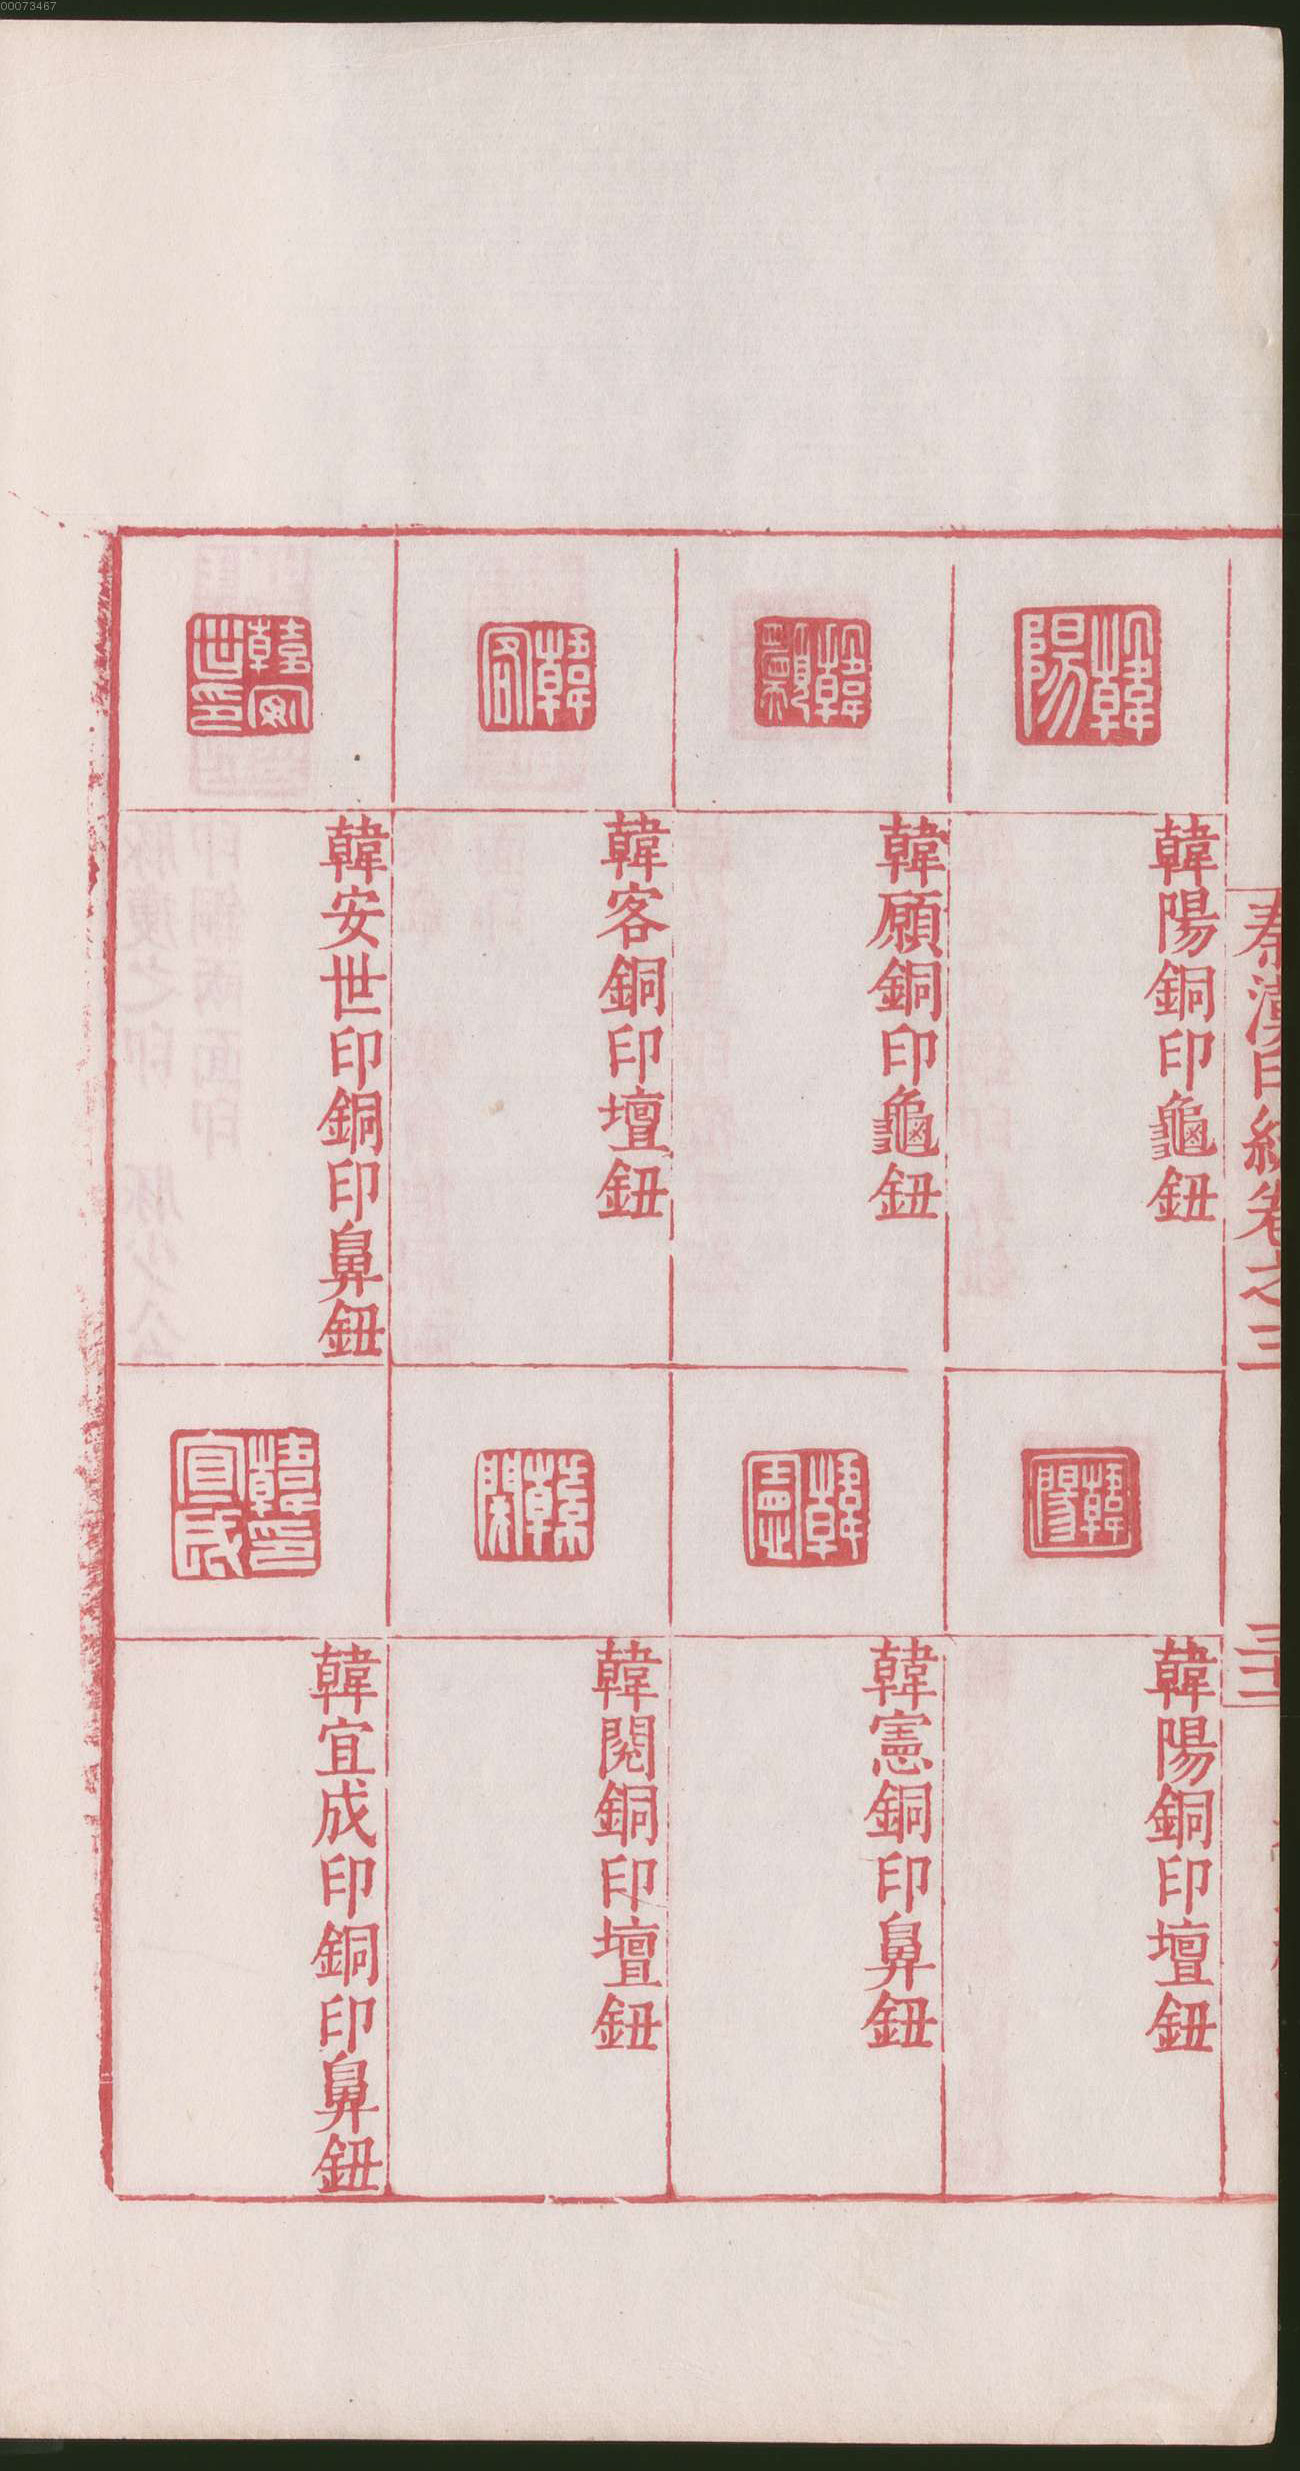 00073467
秦漢印統卷之三
三十一
韓陽
韓陽銅印龜鈕
韓願
韓願銅印龜鈕
韓客
韓客銅印壇鈕
韓安世印
韓安世印銅印鼻鈕
韓陽
韓陽銅印壇鈕
韓憲
韓憲銅印鼻鈕
韓閱
韓閱銅印壇鈕
韓宜成印
韓宜成印銅印鼻鈕